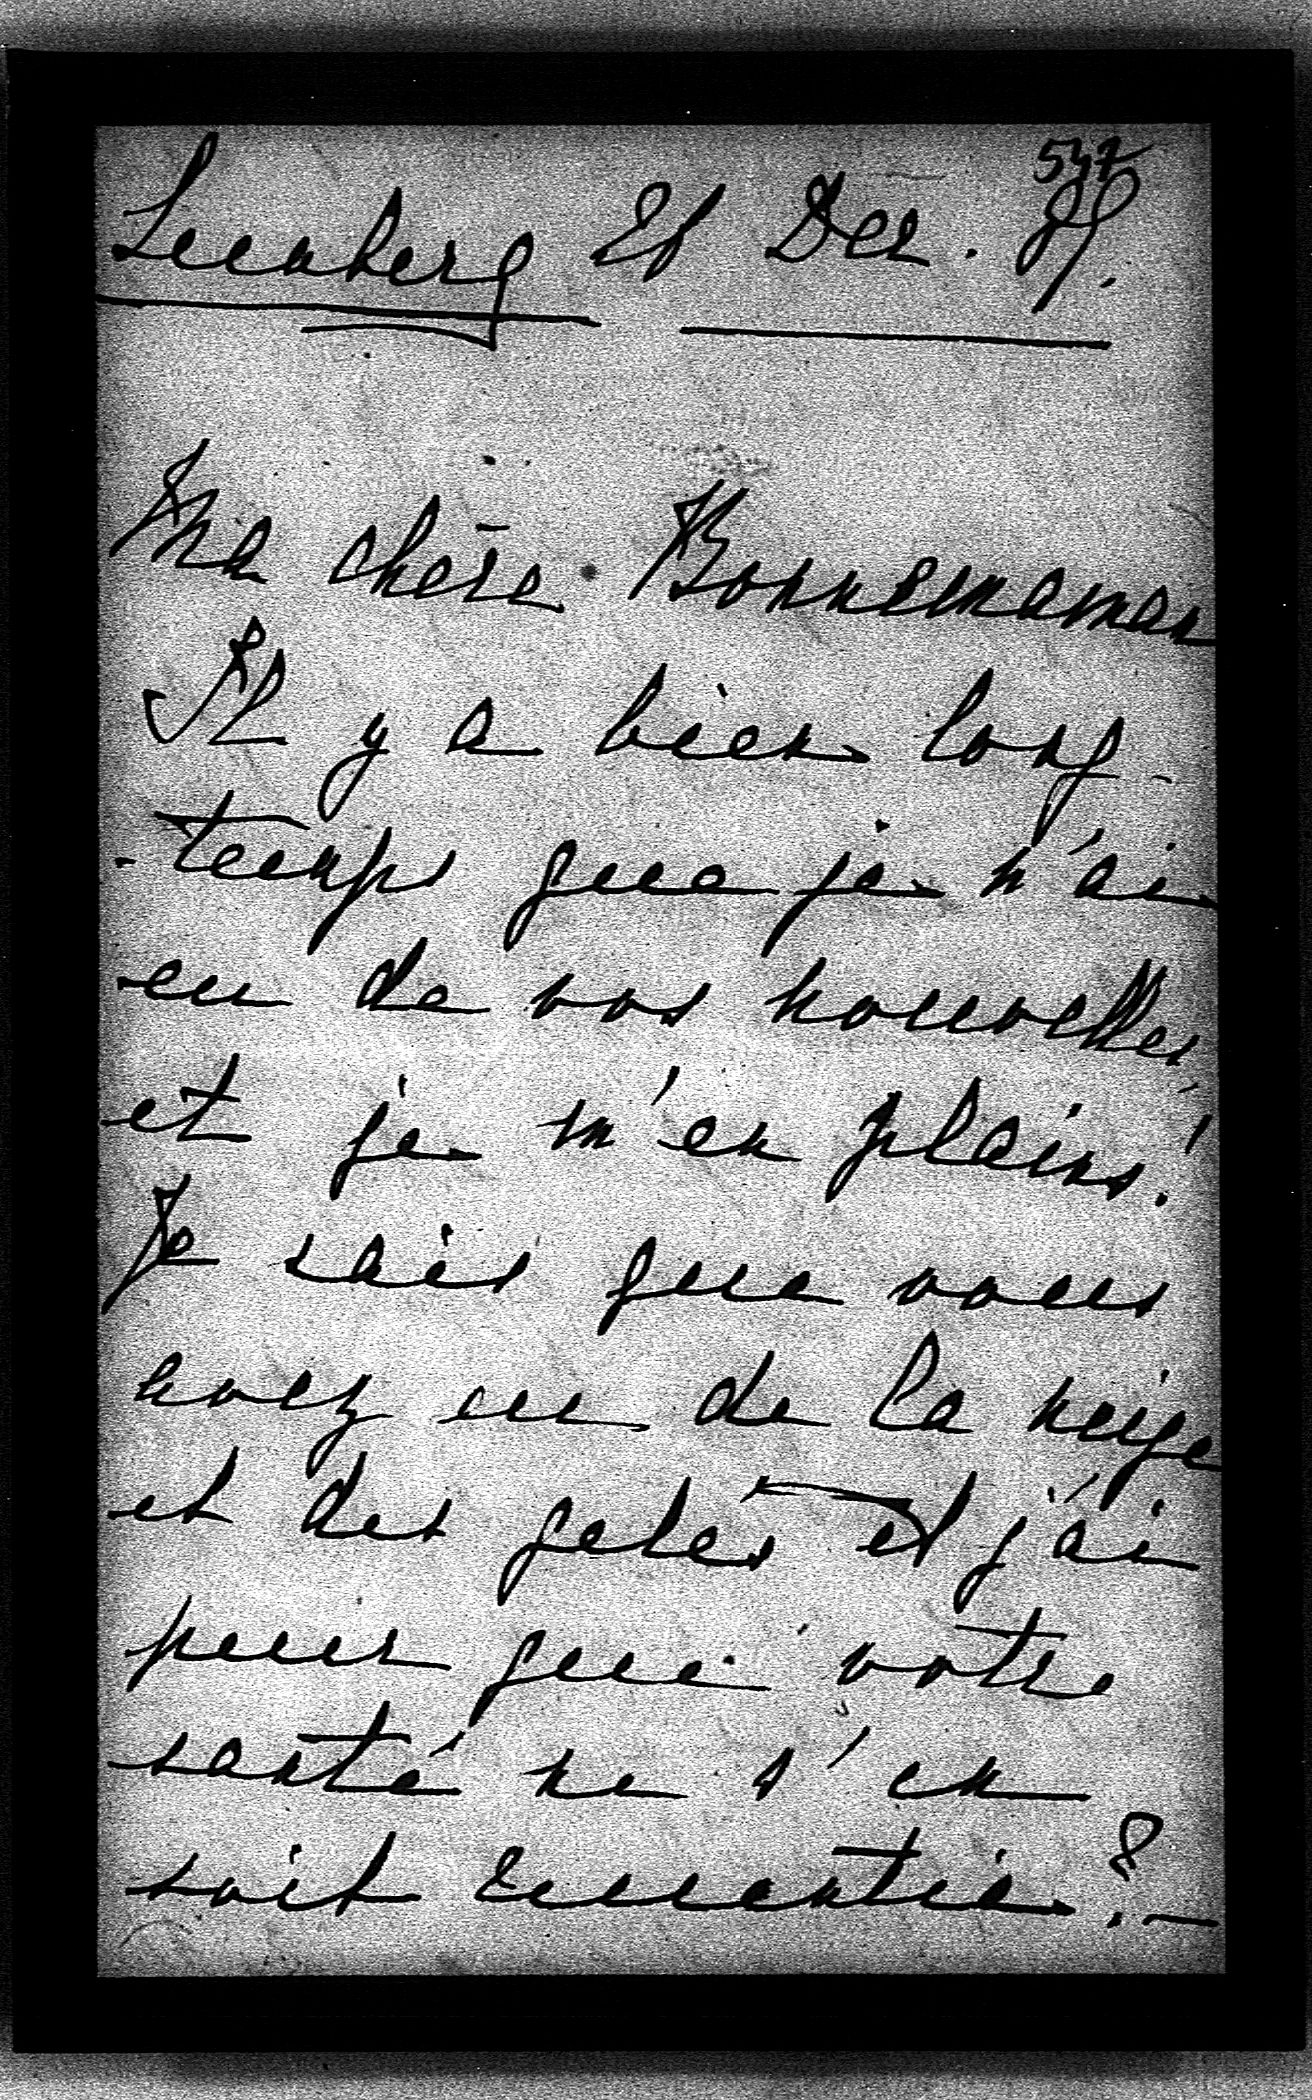 547
Lemberg 21 Dez. 99.
Ma chère Bonnemaman
Il y a bien long-
-temps que je n'ai
eu de vos nouvelles,
et je m'en plains!
Je sais que vous
avez eu de la neige
et des gelées et j'ai
peur que votre
santé ne s'en
soit ressentie?—